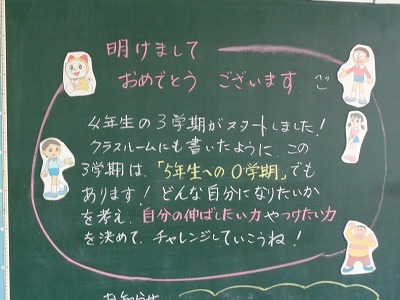 明けまして
おめでとう ございます
4年生の3学期がスタートしました!
クラスルームにも書いたように、この
3学期は、「5年生への0学期」でも
あります!どんな自分になりたいか
を考え、自分の伸ばしたい力やつけたい力
を決めて、チャレンジしていこうね!